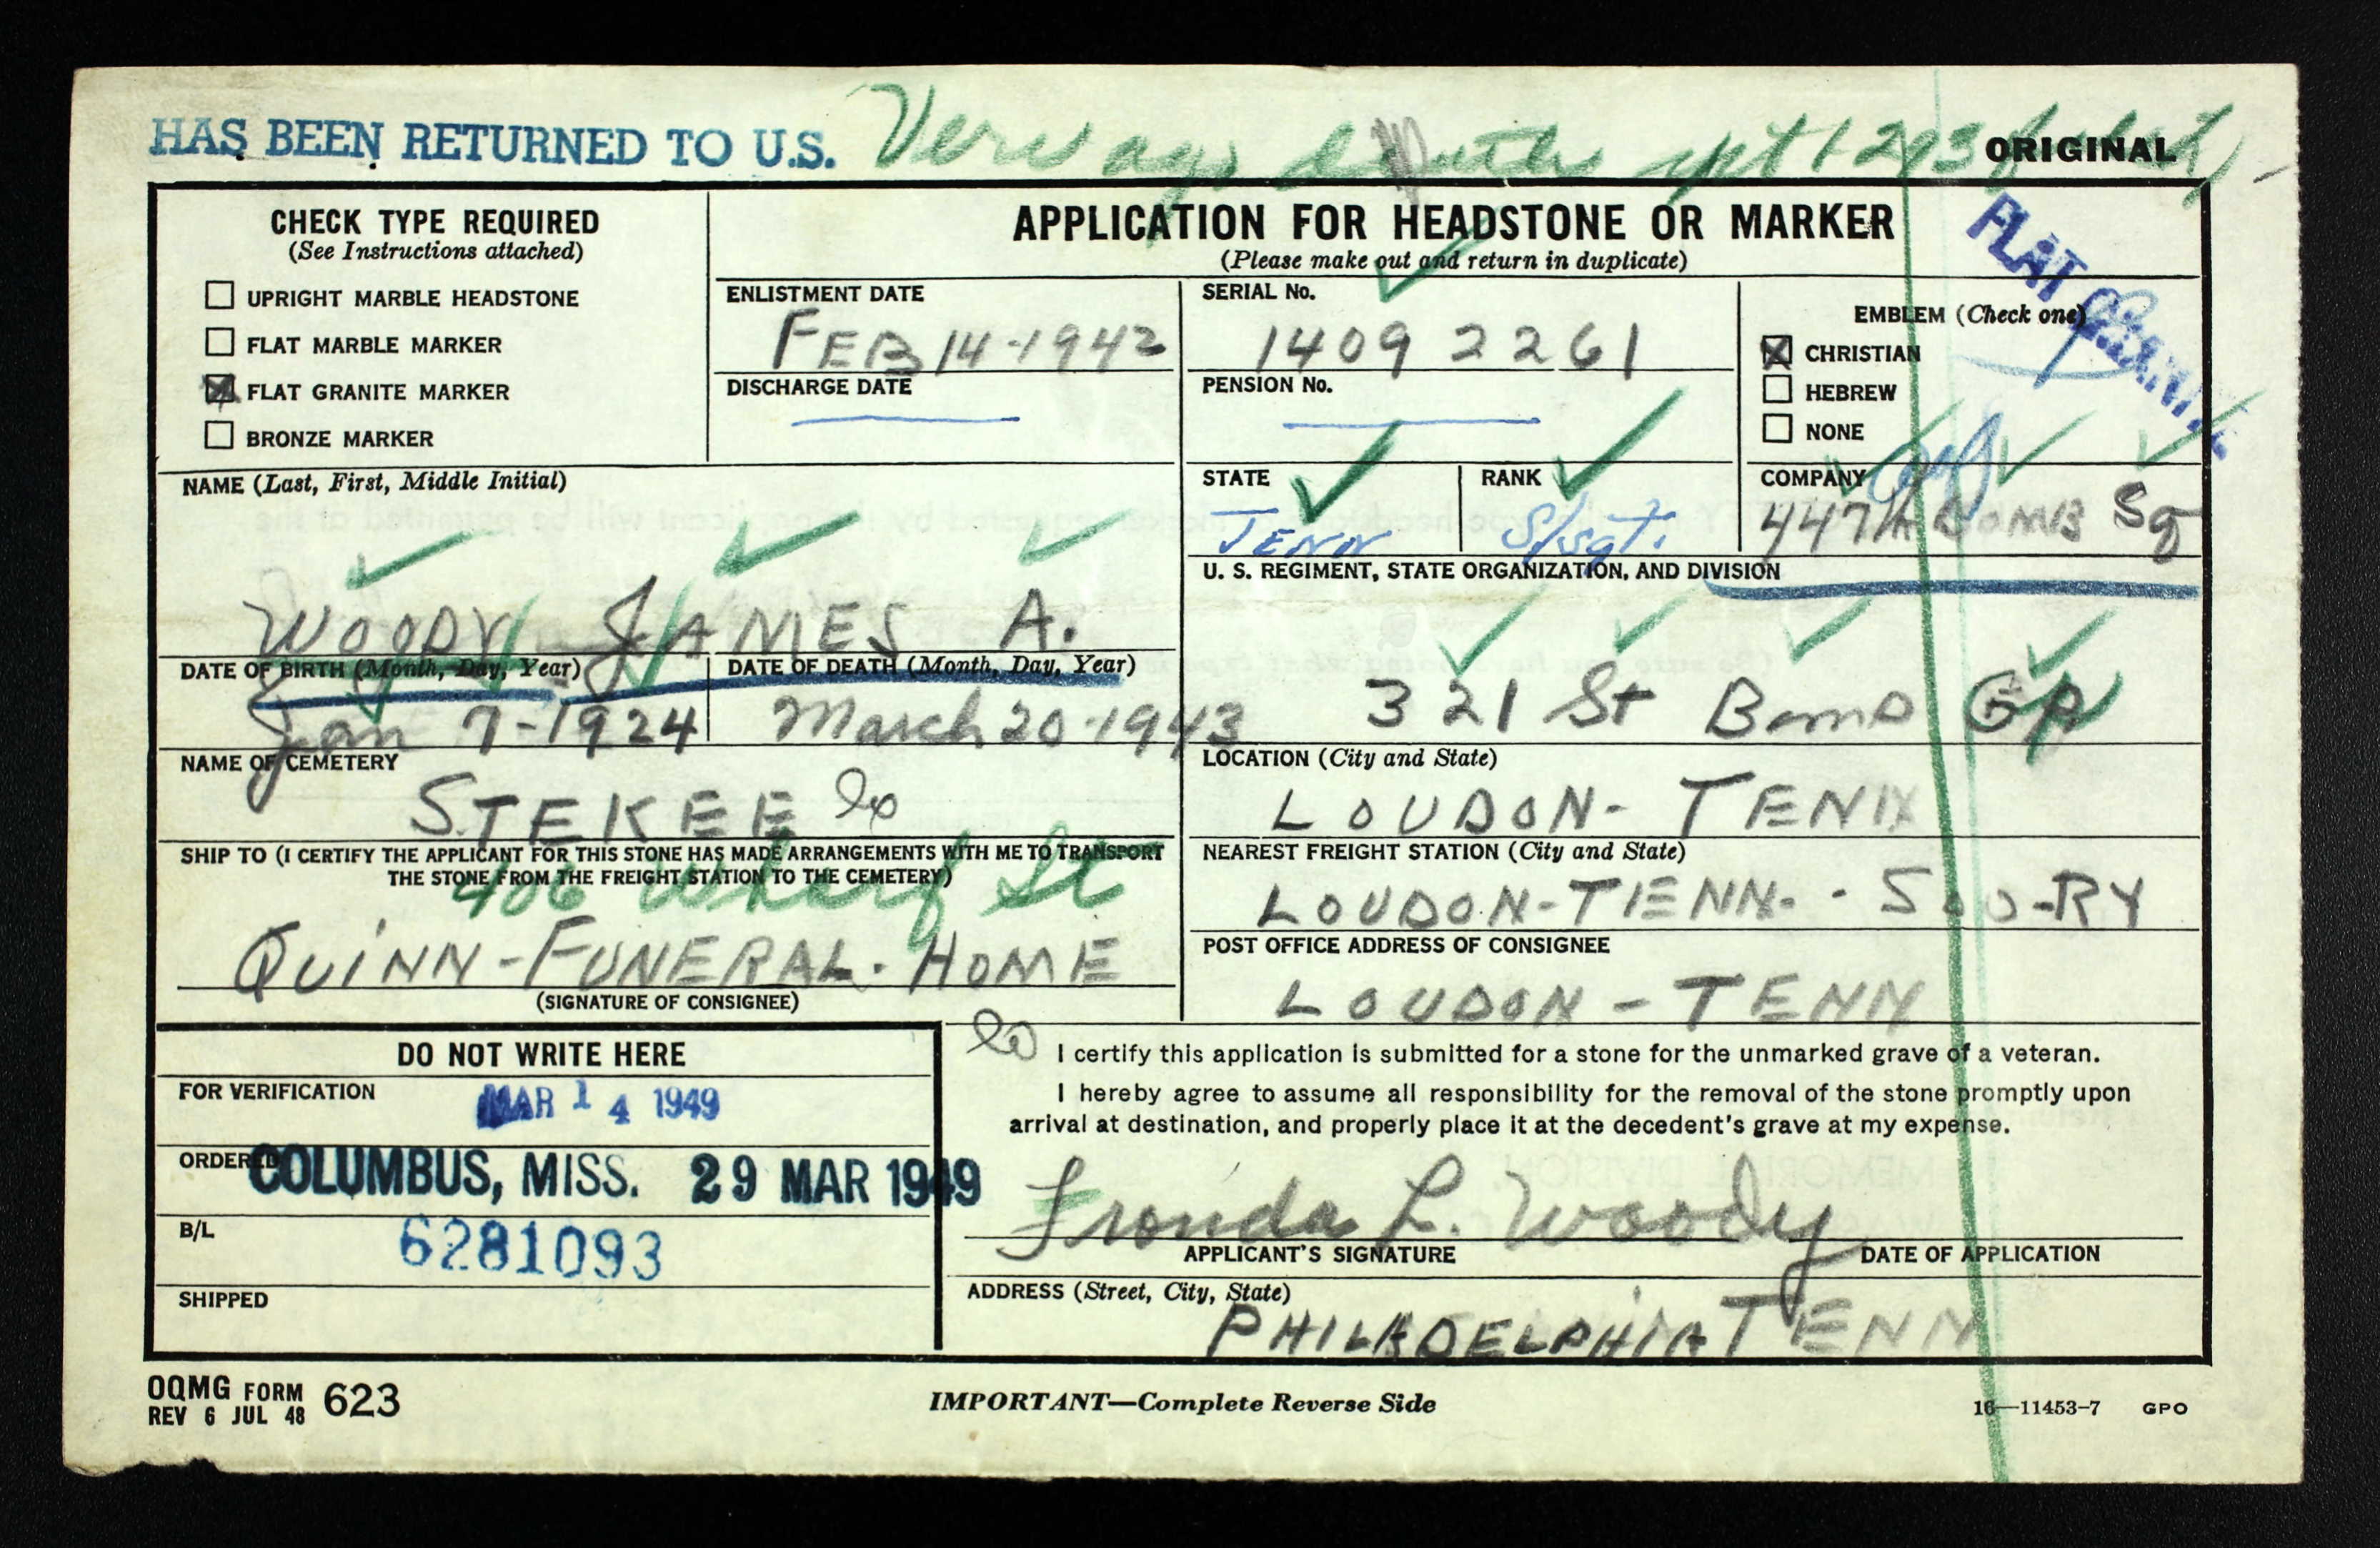 HAS BEEN RETURNED TO U.S.
ORIGINAL
CHECK TYPE REQUIRED
(See Instructions attached)
UPRIGHT MARBLE HEADSTONE
FLAT MARBLE MARKER
FLAT GRANITE MARKER
BRONZE MARKER
APPLICATION FOR HEADSTONE OR MARKER
(Please make out and return in duplicate)
FLAT GRANITE
ENLISTMENT DATE
FEB 14-1942
SERIAL No.
14092261
EMBLEM (Check one)
CHRISTIAN
HEBREW
NONE
DISCHARGE DATE
PENSION No.
NAME (Last, First, Middle Initial)
WOODY JAMES A.
STATE
TENN
RANK
S/sgt.
COMPANY
447th BOMB Sq
U. S. REGIMENT, STATE ORGANIZATION, AND DIVISION
321 St Bomb GP
DATE OF BIRTH (Month, Day, Year)
Jan 7-1924
DATE OF DEATH (Month, Day, Year)
March 20-1943
NAME OF CEMETERY
STEKEE
LOCATION (City and State)
LOUDON- TENN
SHIP TO (I CERTIFY THE APPLICANT FOR THIS STONE HAS MADE ARRANGEMENTS WITH ME TO TRANSPORT
THE STONE FROM THE FREIGHT STATION TO THE CEMETERY)
406 Wharf St
QUINN-FUNERAL. HOME
(SIGNATURE OF CONSIGNEE)
NEAREST FREIGHT STATION (City and State)
LOUDON-TENN. - SOU-RY
POST OFFICE ADDRESS OF CONSIGNEE
LOUDON - TENN
DO NOT WRITE HERE
FOR VERIFICATION
MAR 14 1949
ORDERED
COLUMBUS, MISS. 29 MAR 1949
B/L
6281093
SHIPPED
I certify this application is submitted for a stone for the unmarked grave of a veteran.
I hereby agree to assume all responsibility for the removal of the stone promptly upon
arrival at destination, and properly place it at the decedent's grave at my expense.
Fronda L. Woody
APPLICANT'S SIGNATURE
DATE OF APPLICATION
ADDRESS (Street, City, State)
PHILADELPHIA TENN
OQMG FORM 623
REV 6 JUL 48
IMPORTANT—Complete Reverse Side
16—11453-7 GPO